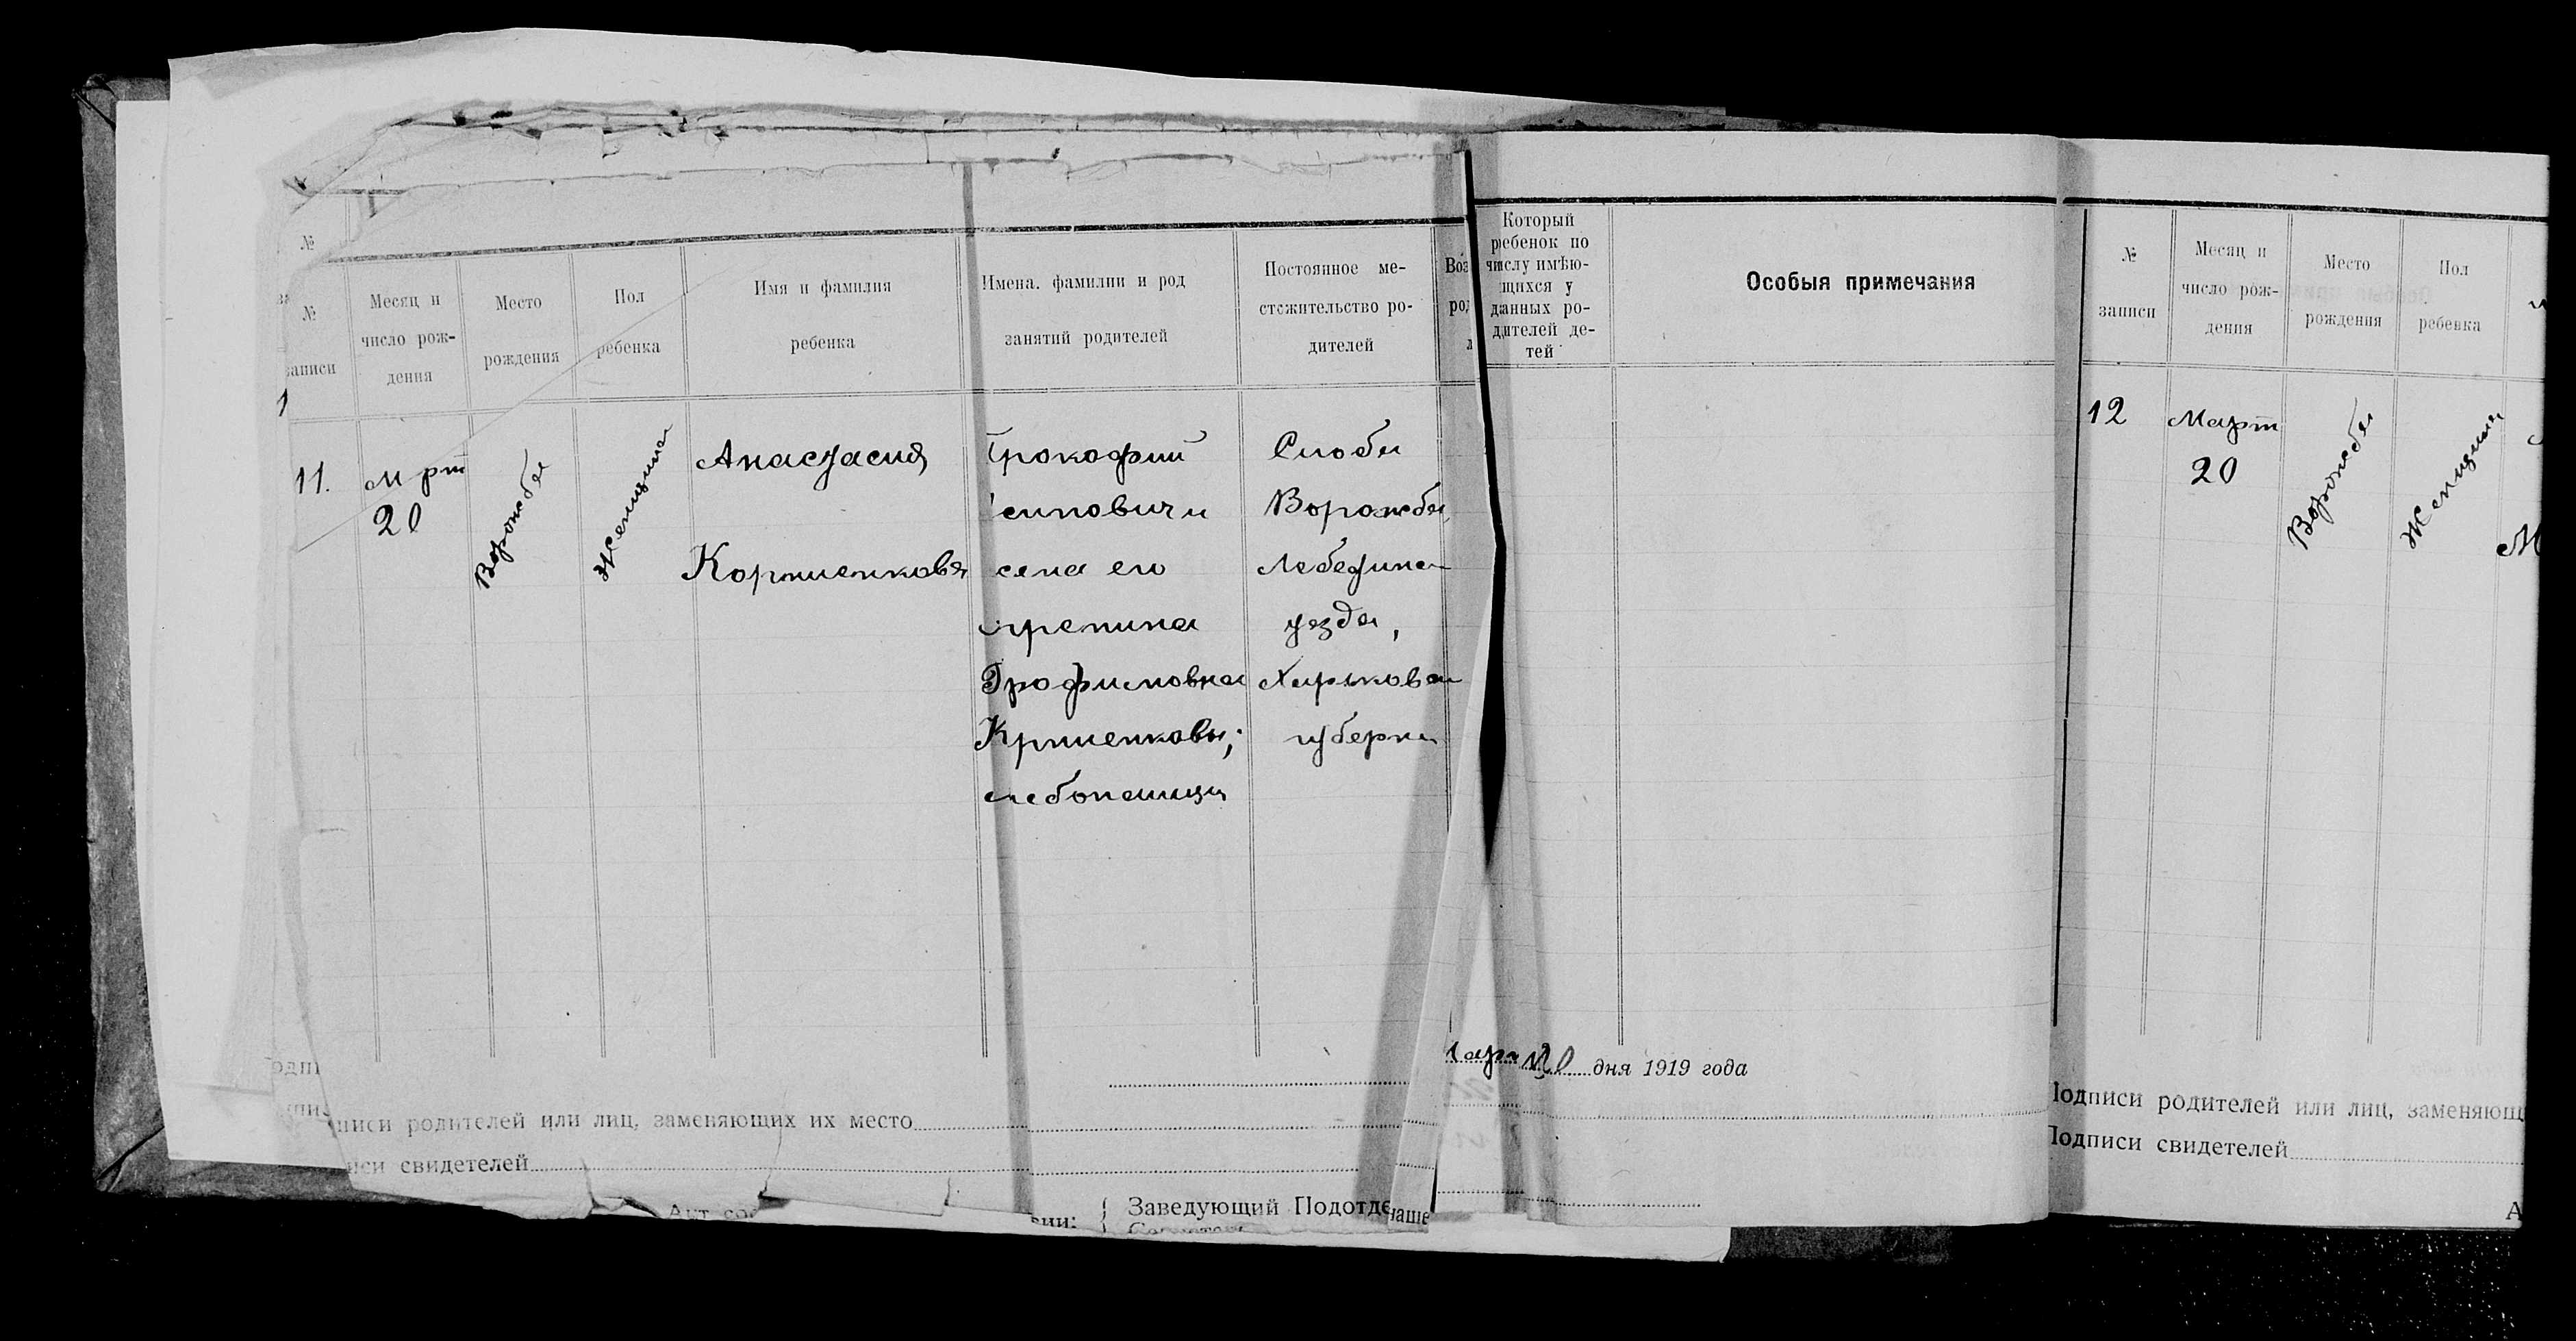 №
№
записи
Месяц и
число рож-
дения
Место
рождения
Пол
ребенка
Имя и фамилия
ребенка
Имена. фамилии и род
занятий родителей
Постоянное ме-
стожительство ро-
дителей
Воз
род
Который
ребенок по
числу имѣю-
щихся у
данных ро-
дителей де-
тей
Особыя примечания
1
11.
М рт
20
Ворожба
Женщина
Анастасия
Корниенкова
Прокофий
сипович и
Трофимовна
Крниенковы;
Слобы
Ворожбы,
Лебедина
уезда,
Харькова
губерни
1арт 20 дня 1919 года
писи родителей или лиц, заменяющих их место
иси свидетелей
Акт сос
нии:
Заведующий Подотде
наше
№
записи
Месяц и
число рож-
дения
Место
рождения
Пол
ребенка
12
Март
20
Ворожба
Женщина
М
Подписи родителей или лиц, заменяющ
Подписи свидетелей
А